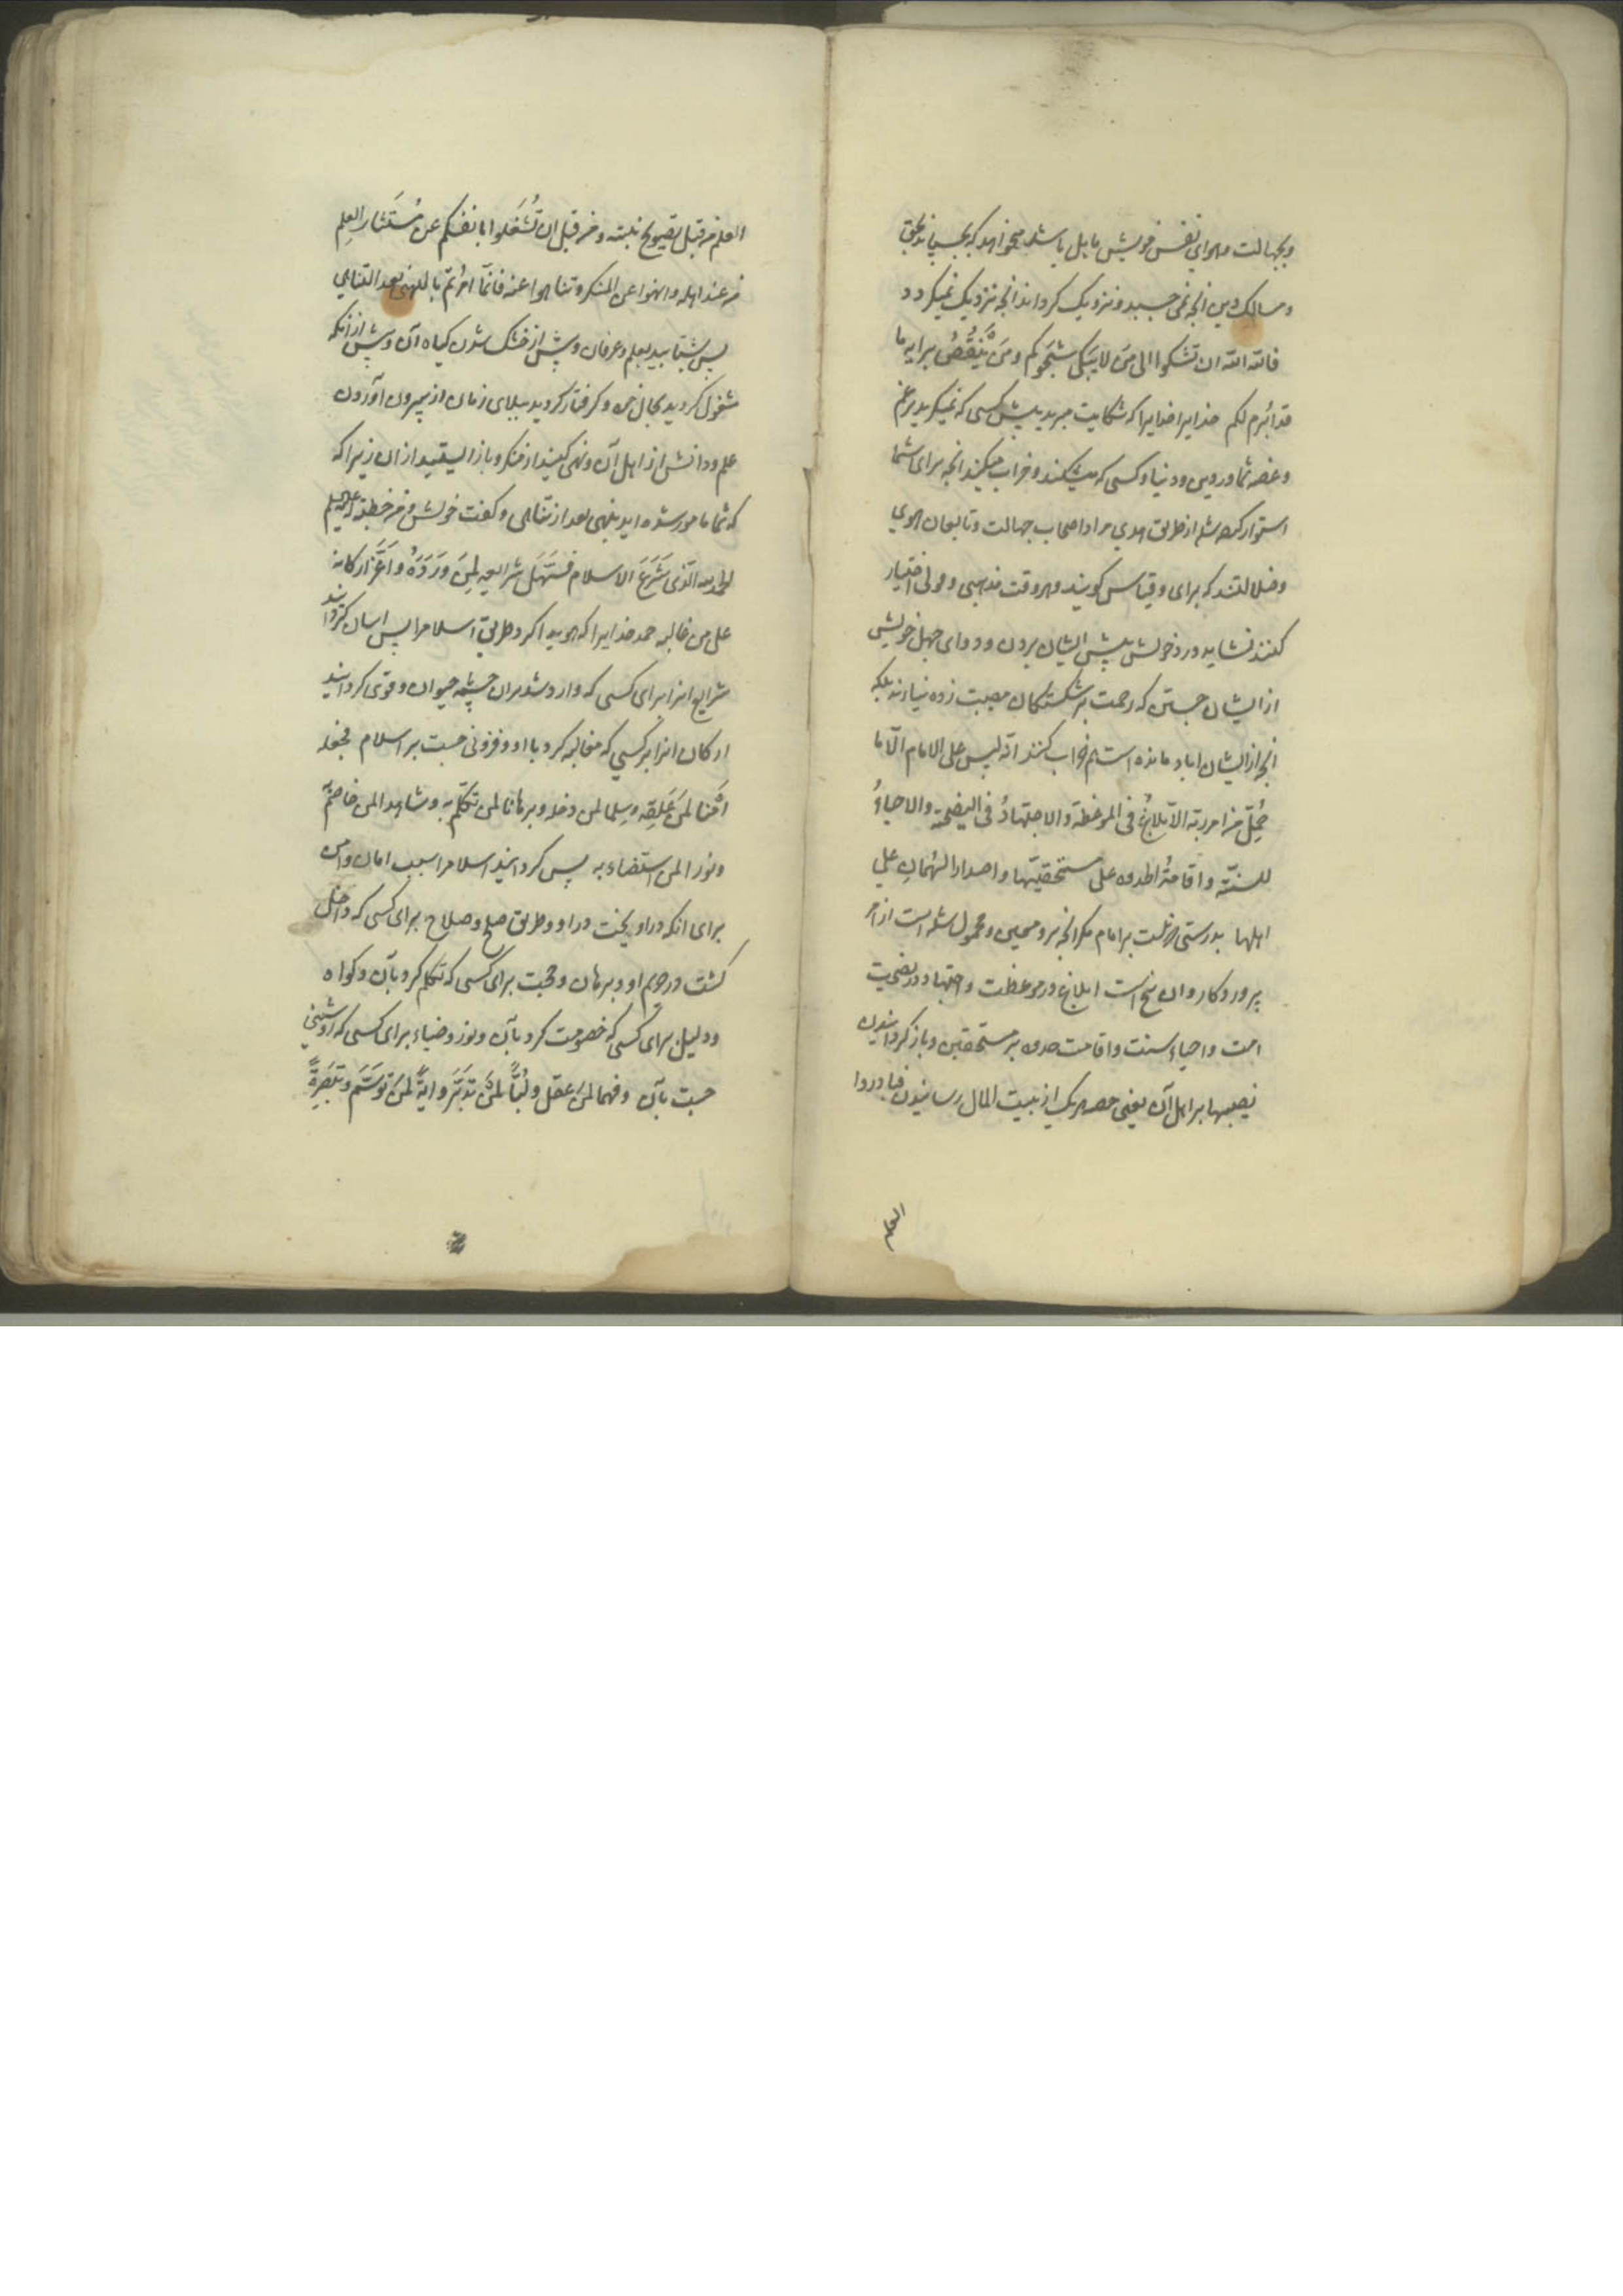 وبجهالت وهوای نفس خویش مایل باشد میخواهد که بچسپاند بحق
ومسالک دین انچه نمی چسبد ونزدیک کرداند انچه نزدیک نمیکردد
فالله الله ان تشکوا الی مَن لا یبکی شجوکم ومَن یَنقُضُ برایه ما
قد ابرم لکم خدایرا خدایرا که شکایت مبرید پیش کسی که نمیکرید بر غم
وغصه شما در دین ودنیا وکسی که میشکند وخراب میکند انچه برای شما
استوار کرده شد از طریق هدی مراد اصحاب جهالت وتابعان هوی
وضلالتند که برای وقیاس کویند وهر وقت مذهبی وقولی اختیار
کنند نشاید درد خویش پیش ایشان بردن ودوای جهل خویش
از ایشان جستن که رحمت بر شکستکان مصیبت زده نیارند بلکه
انچه از ایشان اباد مانده است هم خراب کنند انّه لیس علی الامام الّا ما
حُمِّل من امر ربّه الابلاغُ فی الموعظة والاجتهادُ فی النصیحة والاحیاءُ
للسنّة واقامةُ الحدود علی مستحقیها واصدار السُهمانِ علی
اهلها بدرستی که نیست بر امام مکر انچه برو محمول شده است از امر
پروردکار وان پنج است ابلاغ در موعظت واجتهاد در نصیحت
امت واحیاء سنت واقامت حدود بر مستحقین وباز کردانیدن
نصیبها بر اهل آن یعنی حصه هر یک از بیت المال رسانیدن فبادروا
العلم
العلم من قبل تصویح نبته ومن قبل ان تُشغَلوا بانفسکم عن مُستَثار العِلم
من عند اهله وانهوا عن المنکر وتناهوا عنه فانّما اُمرتم بالنهی بعد التناهی
پس بشتابید بعلم وعرفان پیش از خشک شدن کیاه آن وپیش از انکه
مشغول کردید بحال خود وکرفتار کردید ببلای زمان از بیرون آوردن
علم ودانش از اهل آن ونهی کنید از منکر وباز ایستید از ان زیرا که
که شما مامور شده اید بنهی بعد از تناهی وکفت خویش ومن خطبة له علیه السلم
الحمد لله الّذی شَرَعَ الاسلام فَسَهَّل شرایعه لِمَن وَرَدَهُ واَعَزَّ ارکانه
علی من غالبه حمد خدایرا که هویدا کرد طریق اسلام را پس اسان کردانید
شرایع انرا برای کسی که وارد شد بران چشمه حیوان وقوی کردانید
ارکان انرا بر کسی که مغالبه کرد با او وفزونی جست بر اسلام فجعله
اَمنا لمَن عَلِقَه وسِلما لمن دخله وبرهانا لمن تکلّم به وشاهدا لمن خاصم به
ونورا لمن استضاء به پس کردانید اسلام را سبب امان وامن
برای انکه دراویخت در او وطریق صلح وصلاح برای کسی که داخل
کشت در حرم او وبرهان وحجت برای کسی که تکلم کرد بآن وکواه
ودلیل برای کسی که خصومت کرد بآن ونور وضیاء برای کسی که روشنی
جست بآن وفهما لمن عقل ولُبّاً لمَن تدبّر وایةً لمَن توسّم وتبصرةً